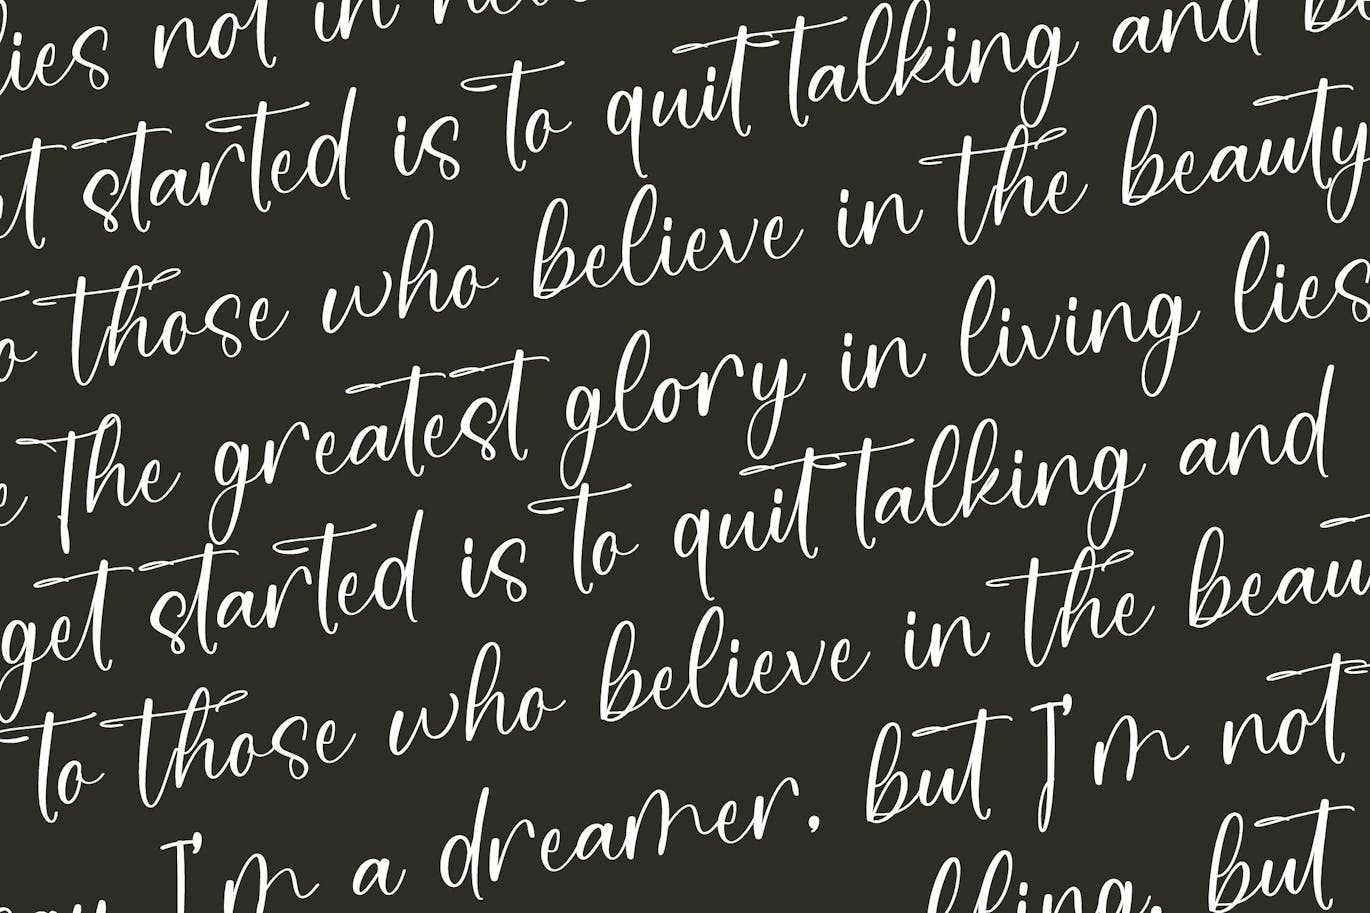 lies not in
started is to quit talking and
those who believe in the beauty
The greatest glory in living lies
get started is to quit talking and
to those who believe in the
I'm a dreamer, but I'm not
but